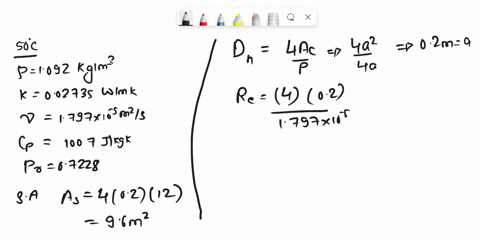 50ic
ρ = 1.092 kg/m³
K = 0.02735 W/mk
ν = 1.797×10⁻⁵ m²/s
Cp = 1007 J/kgk
Pr = 0.7228
S.A As = 4(0.2)(12)
= 9.6m²
Dh = 4Ac/P ⇒ 4a²/4a ⇒ 0.2m = a
Re = (4)(0.2)/1.797×10⁻⁵